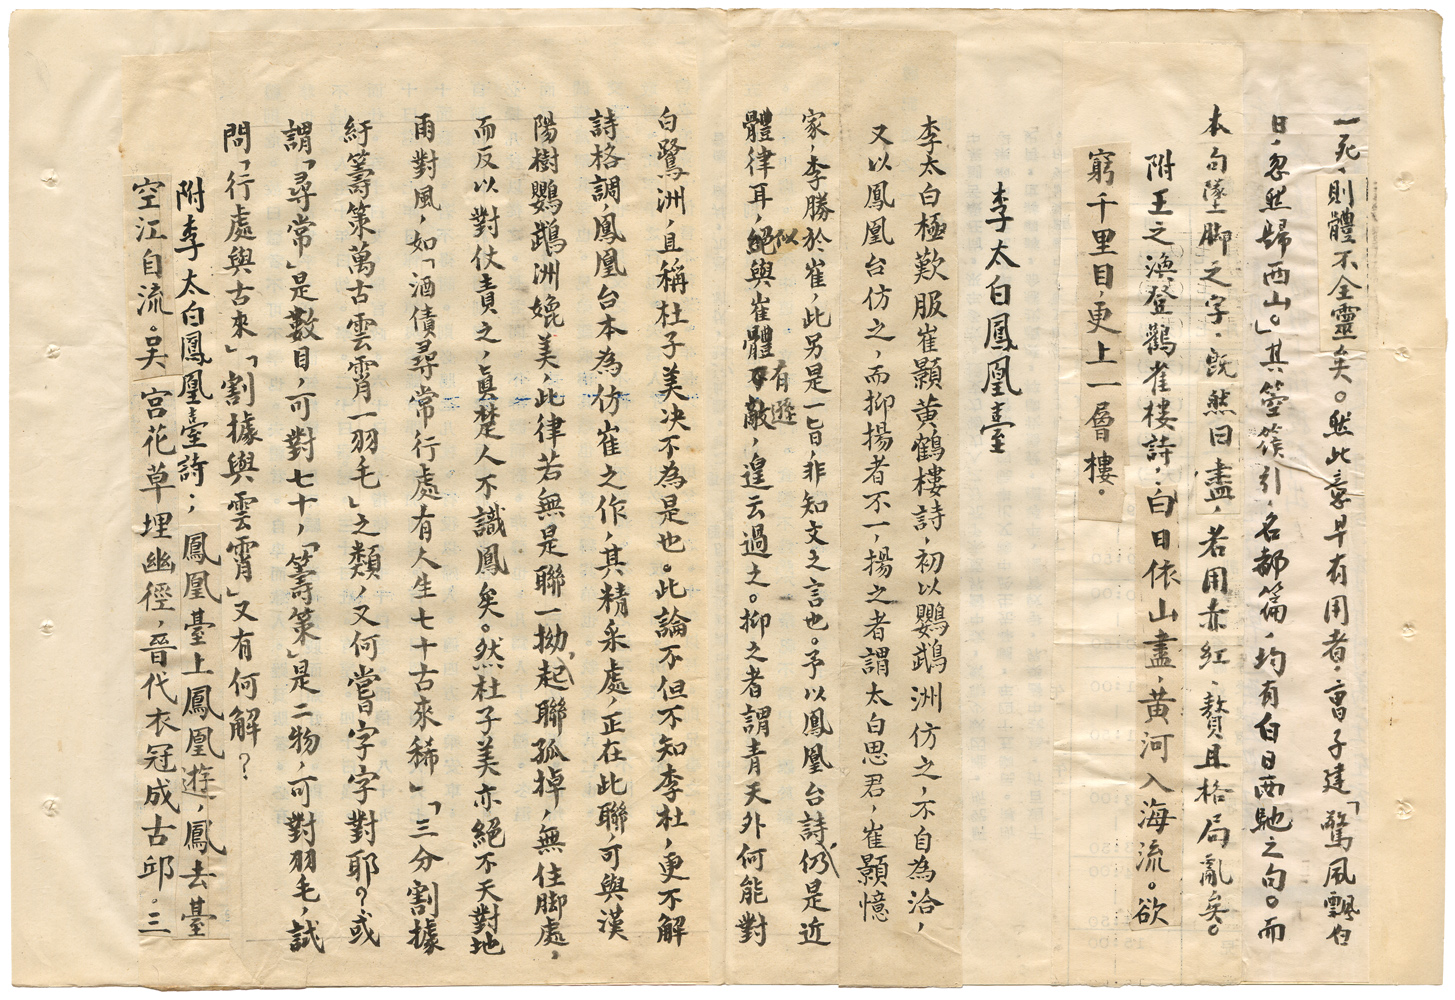 一死，則體不全靈矣。然此意早有用者，曹子建「驚風飄白
日，忽然歸西山。」其箜篌引，名都篇，均有白日西馳之句。而
本句墜腳之字，既然曰盡，若用赤紅，贅且格局亂矣。
附王之渙登鸛雀樓詩，白日依山盡，黃河入海流。欲
窮千里目，更上一層樓。
李太白鳳凰臺
李太白極歎服崔顥黃鶴樓詩，初以鸚鵡洲仿之，不自為洽，
又以鳳凰台仿之，而抑揚者不一，揚之者謂太白思君，崔顥憶
家，李勝於崔，此另是一旨，非知文之言也。予以鳳凰台詩仍是近
體律耳，似與崔體有遜，遑云過之。抑之者謂青天外何能對
白鷺洲，且稱杜子美決不為是也。此論不但不知李杜，更不解
詩格調，鳳凰台本為仿崔之作，其精采處，正在此聯，可與漢
陽樹鸚鵡洲媲美，此律若無是聯一拗起，聯孤掉，無住腳處，
而反以對仗責之，真楚人不識鳳矣。然杜子美亦絕不天對地
雨對風，如「酒債尋常行處有人生七十古來稀」「三分割據
紆籌策萬古雲霄一羽毛」之類，又何嘗字字對耶？或
謂「尋常」是數目，可對七十，「籌策」是二物，可對羽毛，試
問「行處與古來」「割據與雲霄」又有何解？
附李太白鳳凰臺詩；鳳凰臺上鳳凰遊，鳳去臺
空江自流。吳宮花草埋幽徑，晉代衣冠成古邱。三